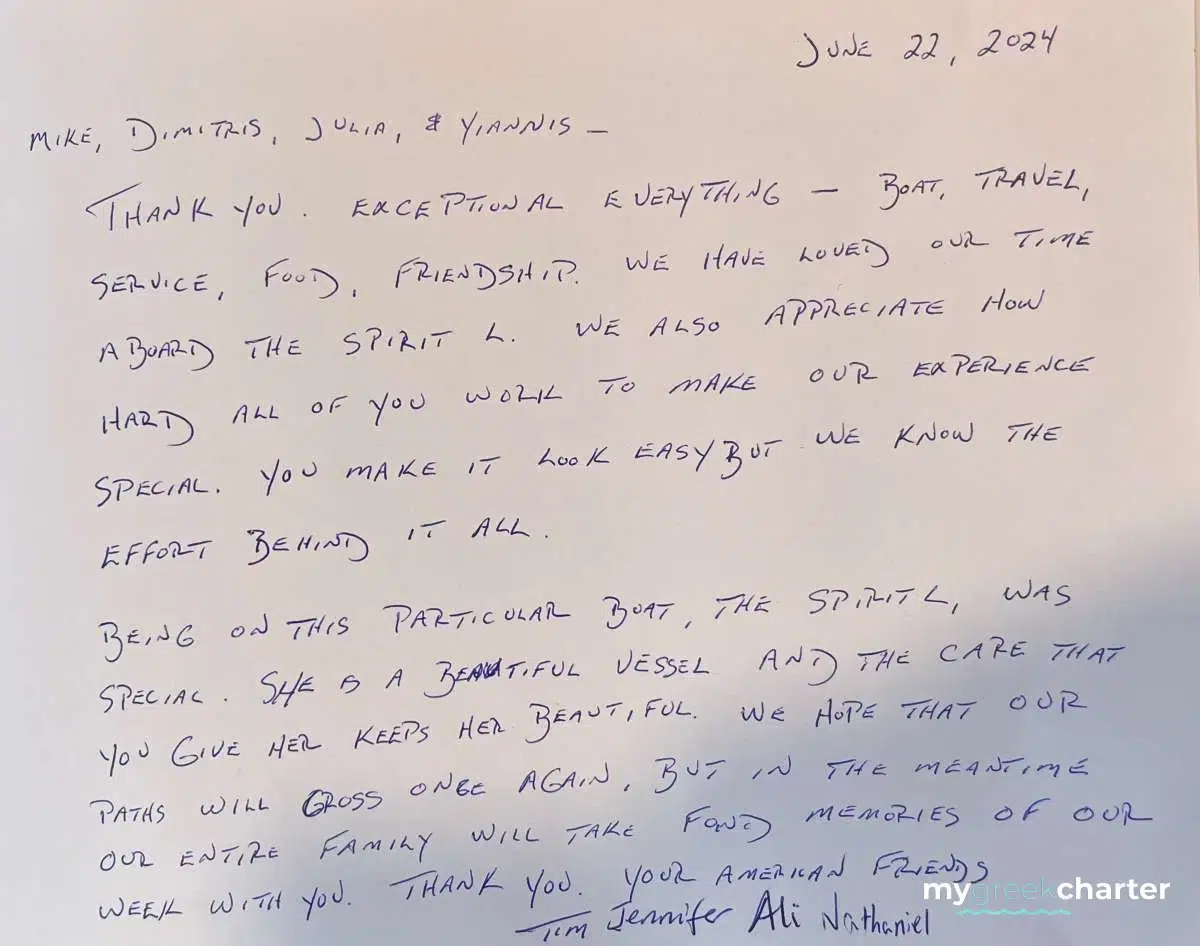 JUNE 22, 2024
MIKE, DIMITRIS, JULIA, & YIANNIS —
THANK YOU. EXCEPTIONAL EVERYTHING — BOAT, TRAVEL,
SERVICE, FOOD, FRIENDSHIP. WE HAVE LOVED OUR TIME
ABOARD THE SPIRIT L. WE ALSO APPRECIATE HOW
HARD ALL OF YOU WORK TO MAKE OUR EXPERIENCE
SPECIAL. YOU MAKE IT LOOK EASY BUT WE KNOW THE
EFFORT BEHIND IT ALL.
BEING ON THIS PARTICULAR BOAT, THE SPIRIT L, WAS
SPECIAL. SHE IS A BEAUTIFUL VESSEL AND THE CARE THAT
YOU GIVE HER KEEPS HER BEAUTIFUL. WE HOPE THAT OUR
PATHS WILL CROSS ONCE AGAIN, BUT IN THE MEANTIME
OUR ENTIRE FAMILY WILL TAKE FOND MEMORIES OF OUR
WEEK WITH YOU. THANK YOU. YOUR AMERICAN FRIENDS
mygreekcharter
TIM Jennifer Ali Nathaniel